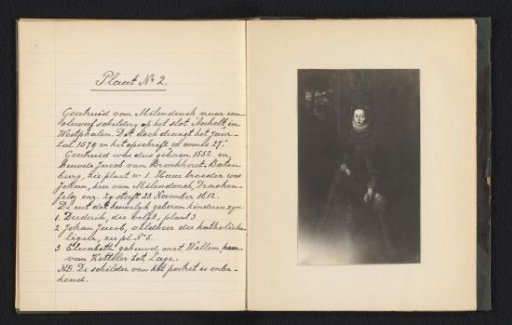 Plaat No 2.
Geertruid van Milendonck naar een
schilderij op het slot Anholt in
Westphalen. Dit stuk draagt het jaar-
tal 1579 en het opschrift
Geertruid was dus geboren 1552 en
huwde Jacob van Bronkhorst Baten-
burg, zie plaat no 1. Haar broeder was
Johan, heer van Milendonck, Drachen-
fels enz. Zij sterft 23 November 1612.
De uit dit huwelijk geboren kinderen zijn
1. Diederik, die volgt, plaat 3
2 Johan Jacob, veldheer der katholieke
ligue, zie pl. No 5.
3 Elisabeth gehuwd met Willem
van Kettler tot Lage.
NB. De schilder van het portret is onbe-
kend.